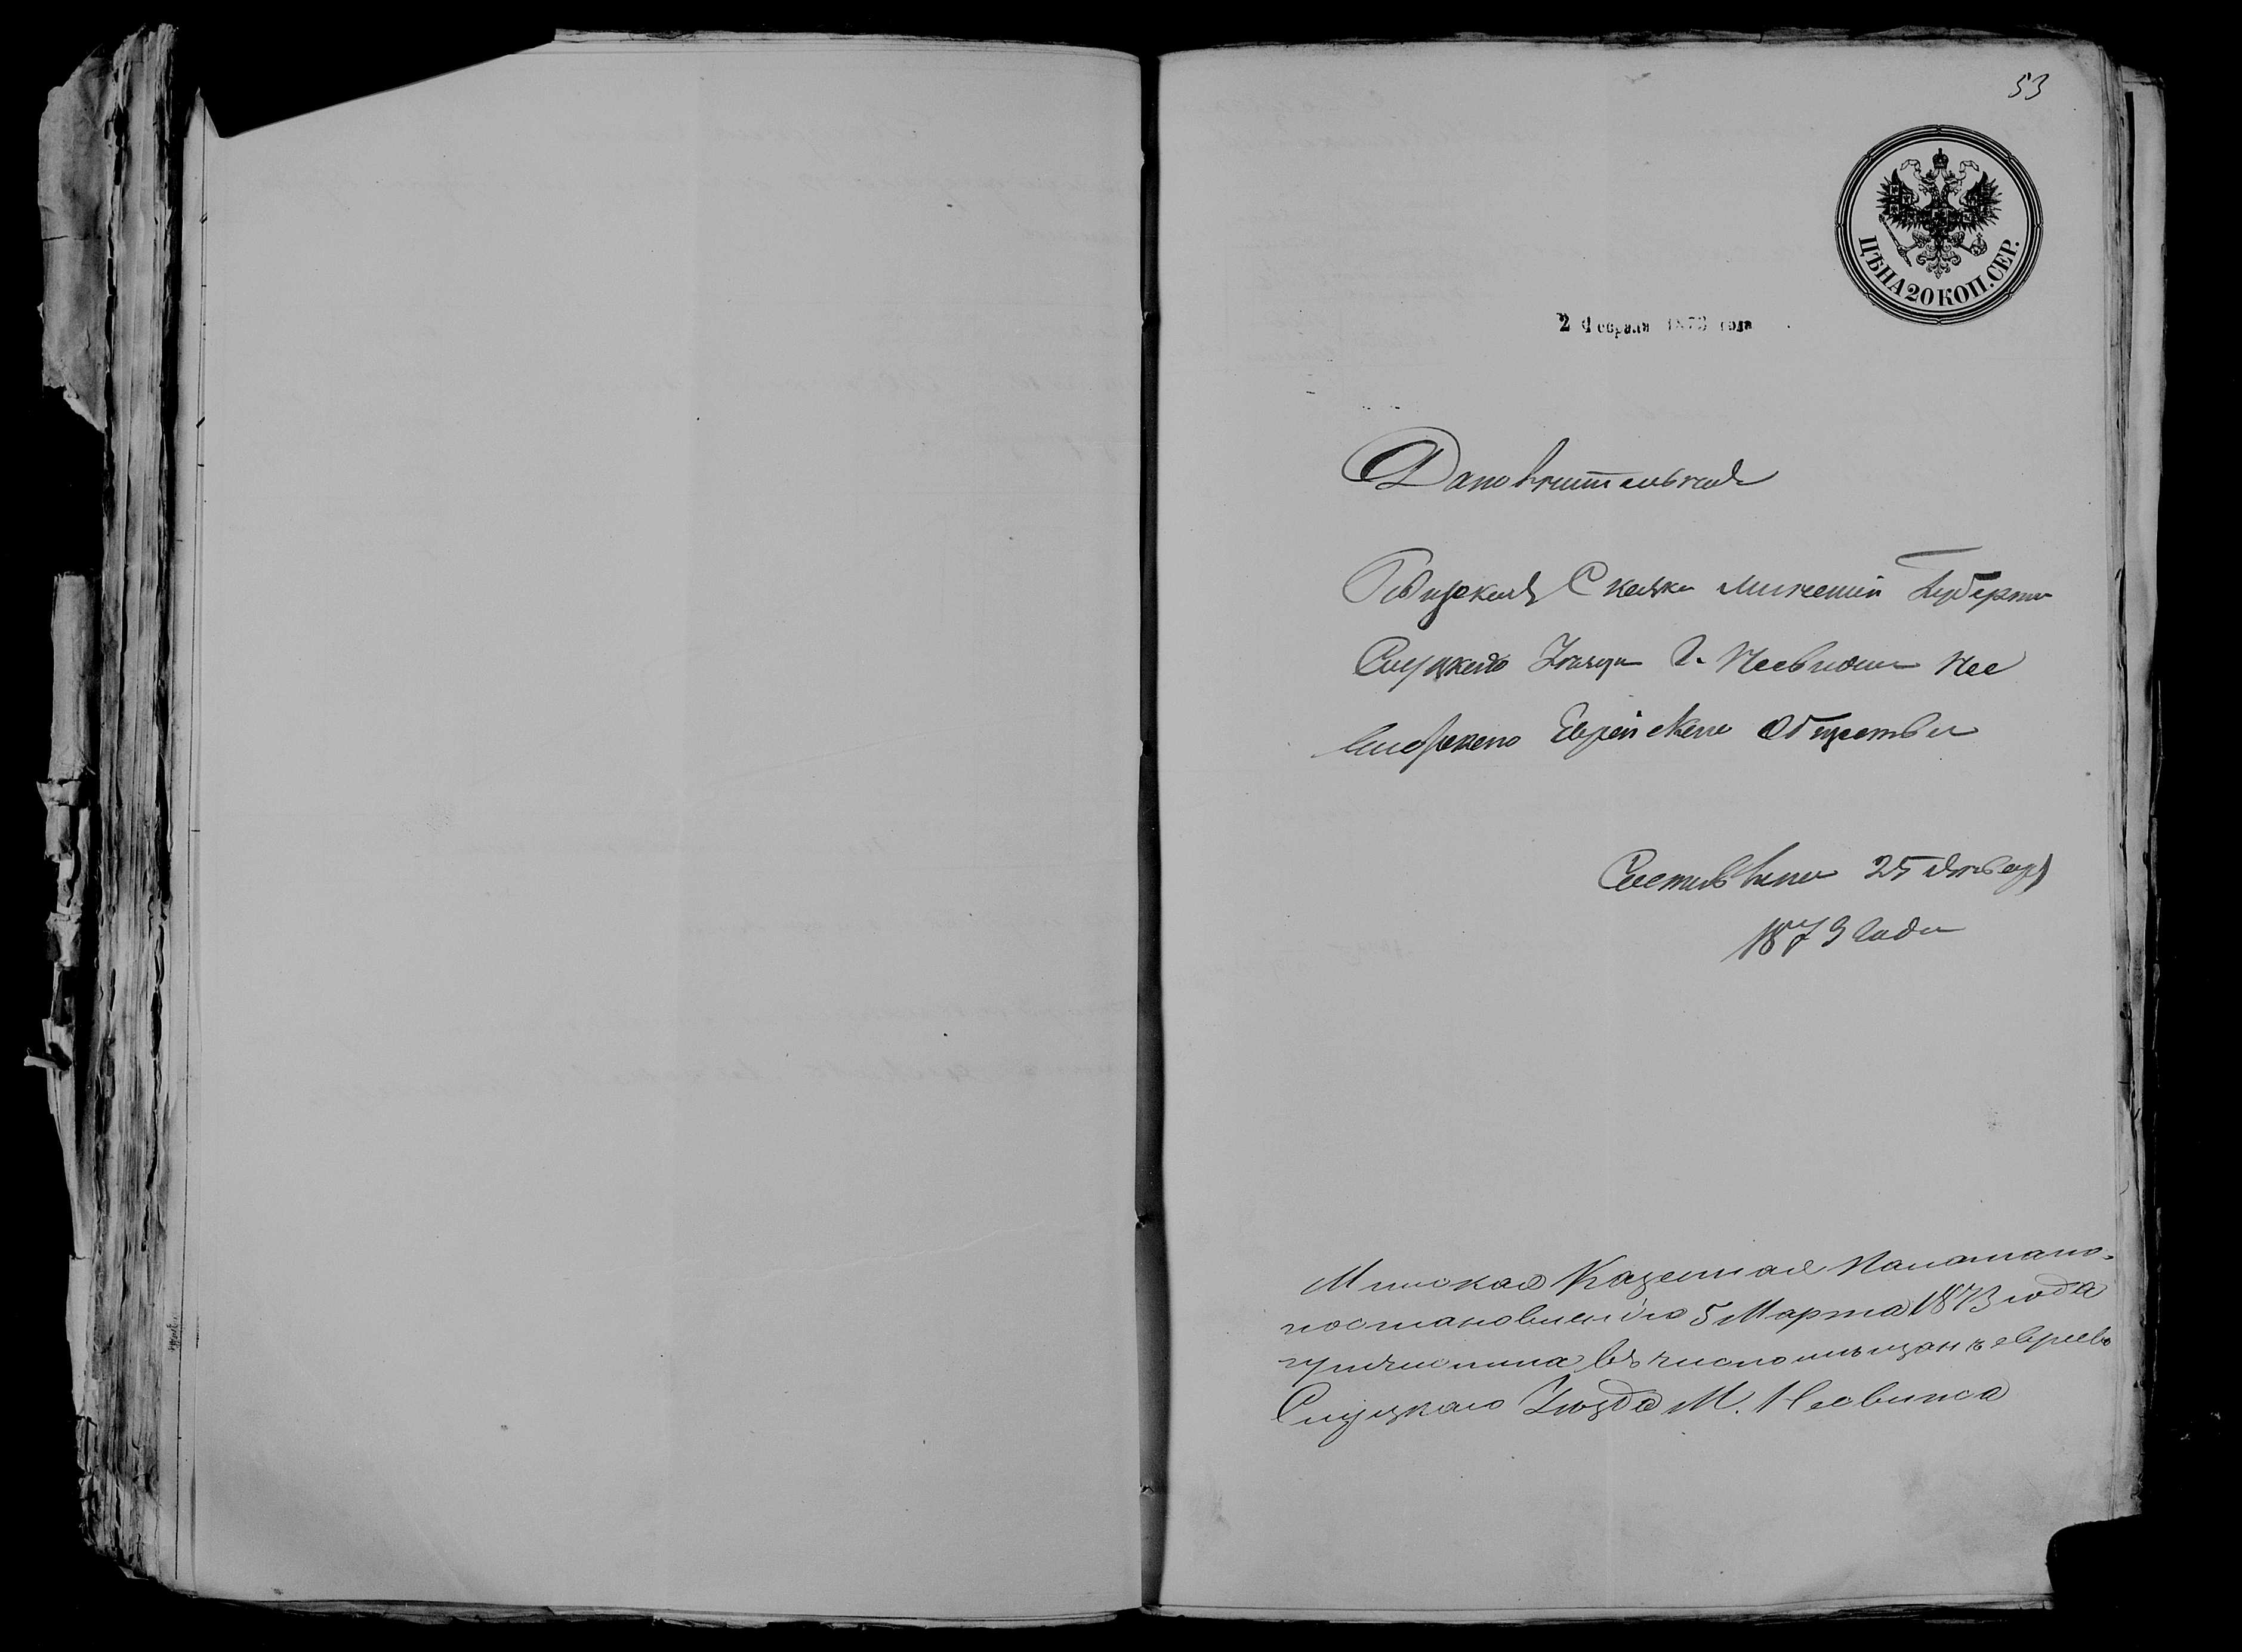 53
ЦѢНА 20 КОП. СЕР.
2 Февраля 1873 года
Дополнительная
Ревизская Сказка Минской Губерни
Слуцкаго Уезда М. Несвижа Нес
вижскаго Еврейскаго Общества
Составлена 25 Января
1873 Года
Минская Казенная Палата по
постановленію 5 Марта 1873 года
причислила въ число мѣщанъ евреевъ
Слуцкаго Уезда М. Несвижа